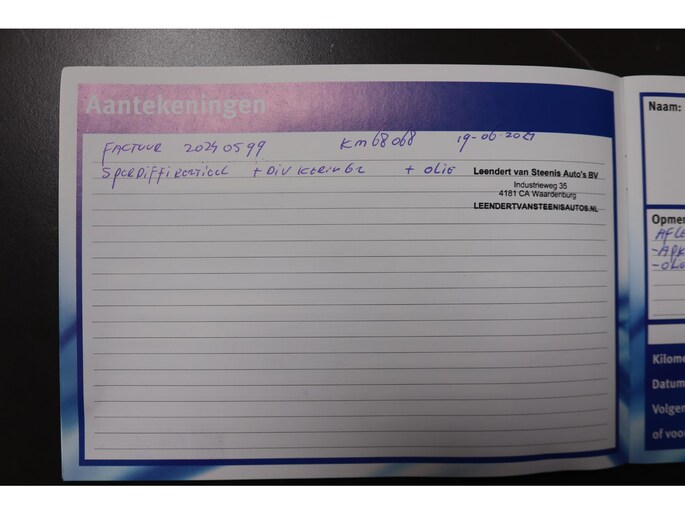 Aantekeningen
FACTUUR 20240599 KM 68068 19-06-2024
SperDiffirentieel + Div Kerin62 + OLIE
Leendert van Steenis Auto's BV
Industrieweg 35
4181 CA Waardenburg
LEENDERTVANSTEENISAUTOS.NL
Naam:
Opme
AFLE
-APK
-OLI
Kilome
Datum
Volgen
of voo